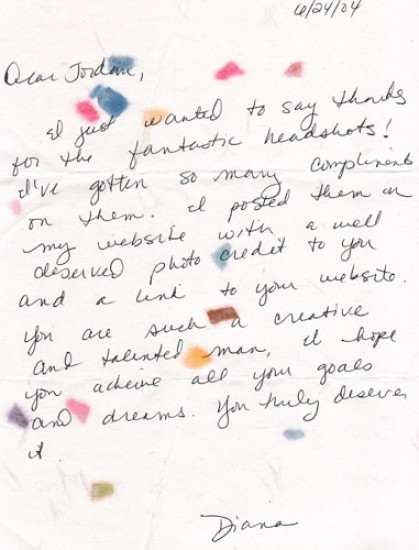 6/24/04
Dear Jordan,
I just wanted to say thanks
for the fantastic headshots!
I've gotten so many compliments
on them. I posted them on
my website with a well
deserved photo credit to you
and a link to your website.
You are such a creative
and talented man, I hope
you acheive all your goals
and dreams. You truly deserve
it.
Diana